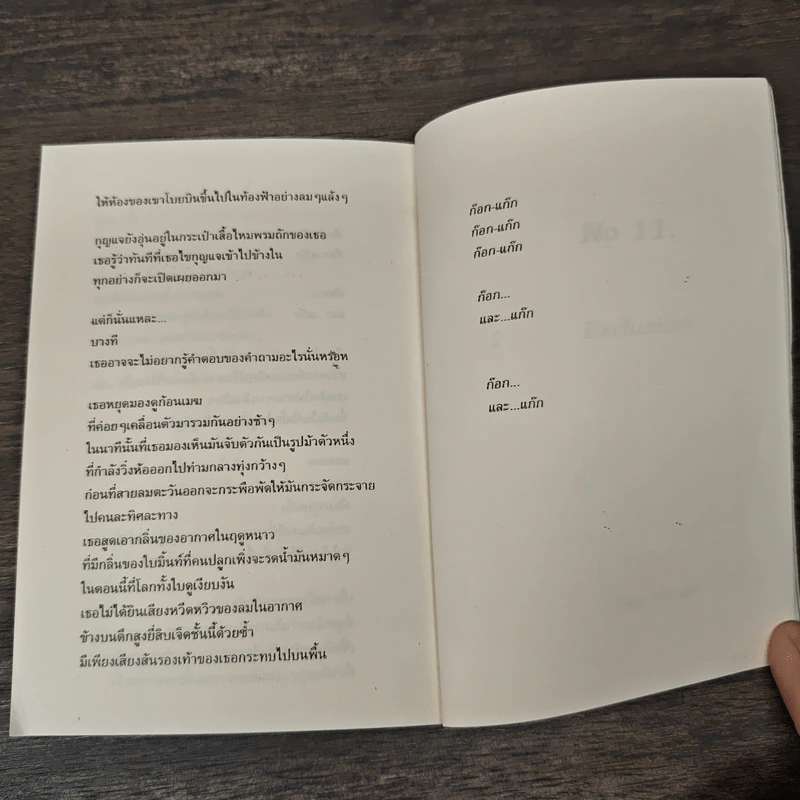 ให้ห้องของเขาโบยบินขึ้นไปในท้องฟ้าอย่างลมๆแล้งๆ
กุญแจยังอุ่นอยู่ในกระเป๋าเสื้อไหมพรมถักของเธอ
เธอรู้ว่าทันทีที่เธอไขกุญแจเข้าไปข้างใน
ทุกอย่างก็จะเปิดเผยออกมา
แต่ก็นั่นแหละ...
บางที
เธออาจจะไม่อยากรู้คำตอบของคำถามอะไรนั่นหรอก
เธอหยุดมองดูก้อนเมฆ
ที่ค่อยๆเคลื่อนตัวมารวมกันอย่างช้าๆ
ในนาทีนั้นที่เธอมองเห็นมันจับตัวกันเป็นรูปม้าตัวหนึ่ง
ที่กำลังวิ่งห้อออกไปท่ามกลางทุ่งกว้างๆ
ก่อนที่สายลมตะวันออกจะกระพือพัดให้มันกระจัดกระจาย
ไปคนละทิศละทาง
เธอสูดเอากลิ่นของอากาศในฤดูหนาว
ที่มีกลิ่นของใบมิ้นท์ที่คนปลูกเพิ่งจะรดน้ำมันหมาดๆ
ในตอนนี้ที่โลกทั้งใบดูเงียบงัน
เธอไม่ได้ยินเสียงหวีดหวิวของลมในอากาศ
ข้างบนตึกสูงยี่สิบเจ็ดชั้นนี้ด้วยซ้ำ
มีเพียงเสียงส้นรองเท้าของเธอกระทบไปบนพื้น
ก๊อก-แก๊ก
ก๊อก-แก๊ก
ก๊อก-แก๊ก
ก๊อก...
และ...แก๊ก
ก๊อก...
และ...แก๊ก
No 11.